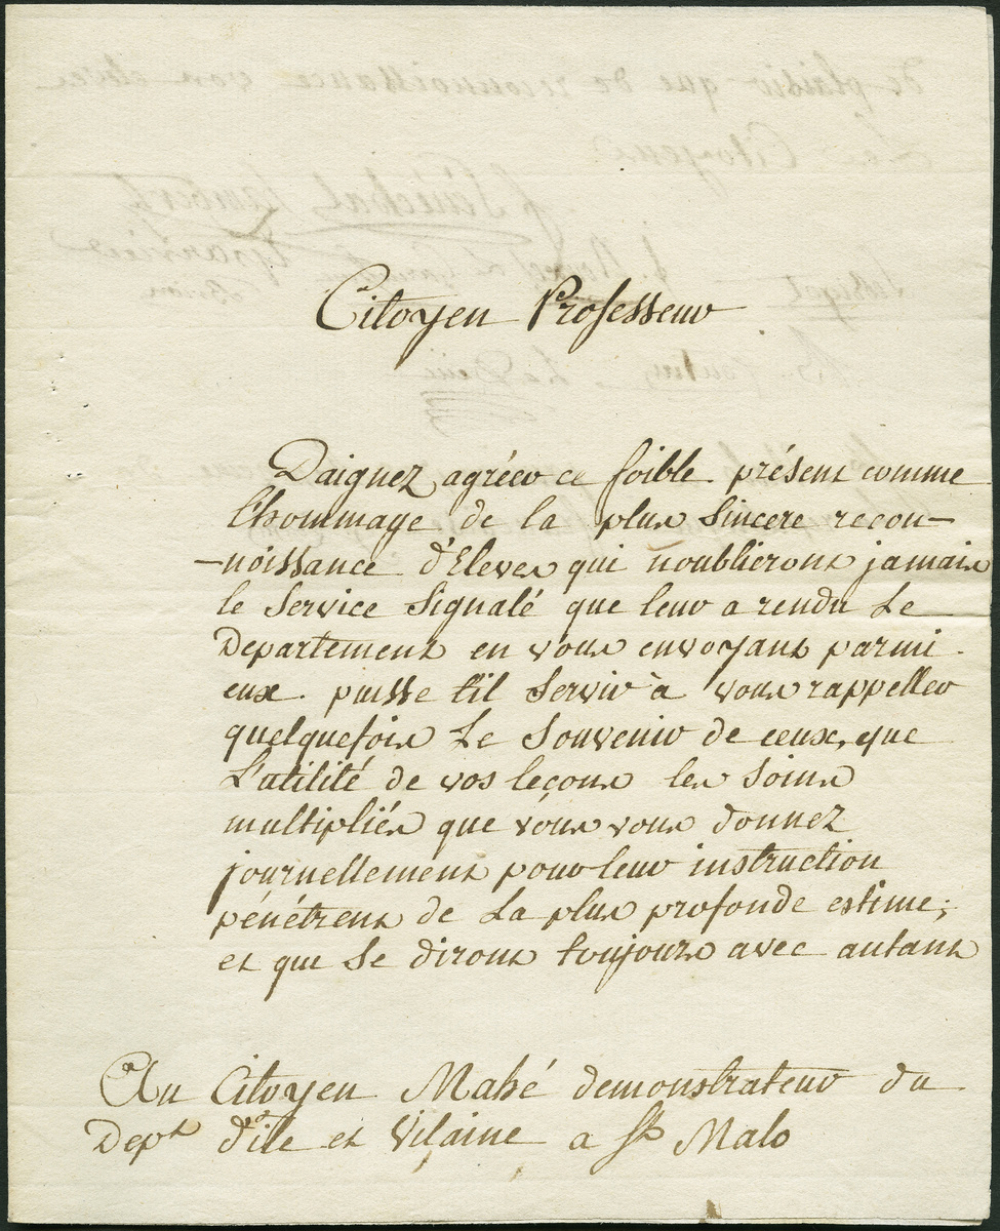 Citoyen Professeur
Daignez agréer ce foible présent comme
l'hommage de la plus sincere recon-
-noissance d'Eleves qui noublieront jamais
le service signalé que leur a rendu le
Departement en vous envoyant parmi
eux. puisse t'il servir à vous rappeller
quelquefois le souvenir de ceux, que
L'utilité de vos leçons les soins
multipliés que vous vous donnez
journellement pour leur instruction
pénétrent de la plus profonde estime;
et que se diront toujours avec autant
Au Citoyen Mahé demonstrateur du
Dept d'ile et Vilaine a St Malo